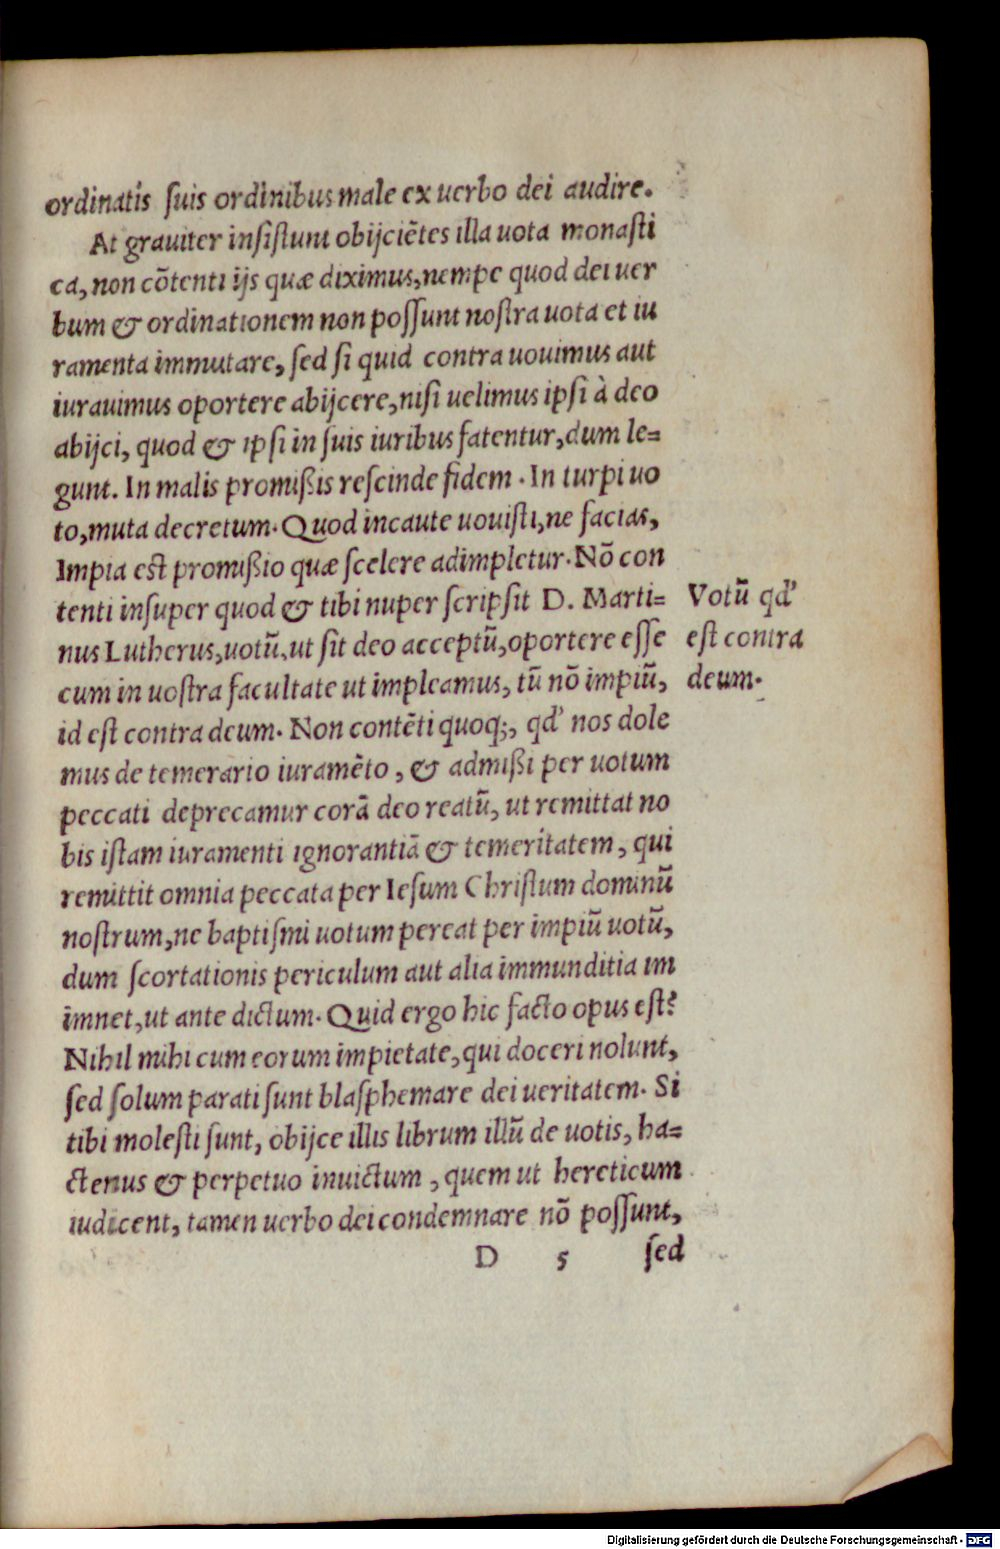 ordinatis ſuis ordinibus male ex uerbo dei audire.
At grauiter inſiſtunt obijciẽtes illa uota monaſti
ca, non cõtenti ijs quæ diximus, nempe quod dei uer
bum & ordinationem non poſſunt noſtra uota et iu
ramenta immutare, ſed ſi quid contra uouimus aut
iurauimus oportere abijcere, niſi uelimus ipſi à deo
abijci, quod & ipſi in ſuis iuribus fatentur, dum le=
gunt. In malis promißis reſcinde fidem. In turpi uo
to, muta decretum. Quod incaute uouiſti, ne facias,
Impia eſt promißio quæ ſcelere adimpletur. Nõ con
tenti inſuper quod & tibi nuper ſcripſit D. Marti=
nus Lutherus, uotũ, ut ſit deo acceptũ, oportere eſſe
cum in uoſtra facultate ut impleamus, tũ nõ impiũ,
id eſt contra deum. Non contẽti quoq;, qd' nos dole
mus de temerario iuramẽto, & admißi per uotum
peccati deprecamur corã deo reatũ, ut remittat no
bis iſtam iuramenti ignorantiã & temeritatem, qui
remittit omnia peccata per Ieſum Chriſtum dominũ
noſtrum, ne baptiſmi uotum pereat per impiũ uotũ,
dum ſcortationis periculum aut alia immunditia im
imnet, ut ante dictum. Quid ergo hic facto opus eſt?
Nihil mihi cum eorum impietate, qui doceri nolunt,
ſed ſolum parati ſunt blaſphemare dei ueritatem. Si
tibi moleſti ſunt, obijce illis librum illũ de uotis, ha=
ctenus & perpetuo inuictum, quem ut hereticum
iudicent, tamen uerbo dei condemnare nõ poſſunt,
D 5 ſed
Votũ qd'
eſt contra
deum.
Digitalisierung gefördert durch die Deutsche Forschungsgemeinschaft - DFG